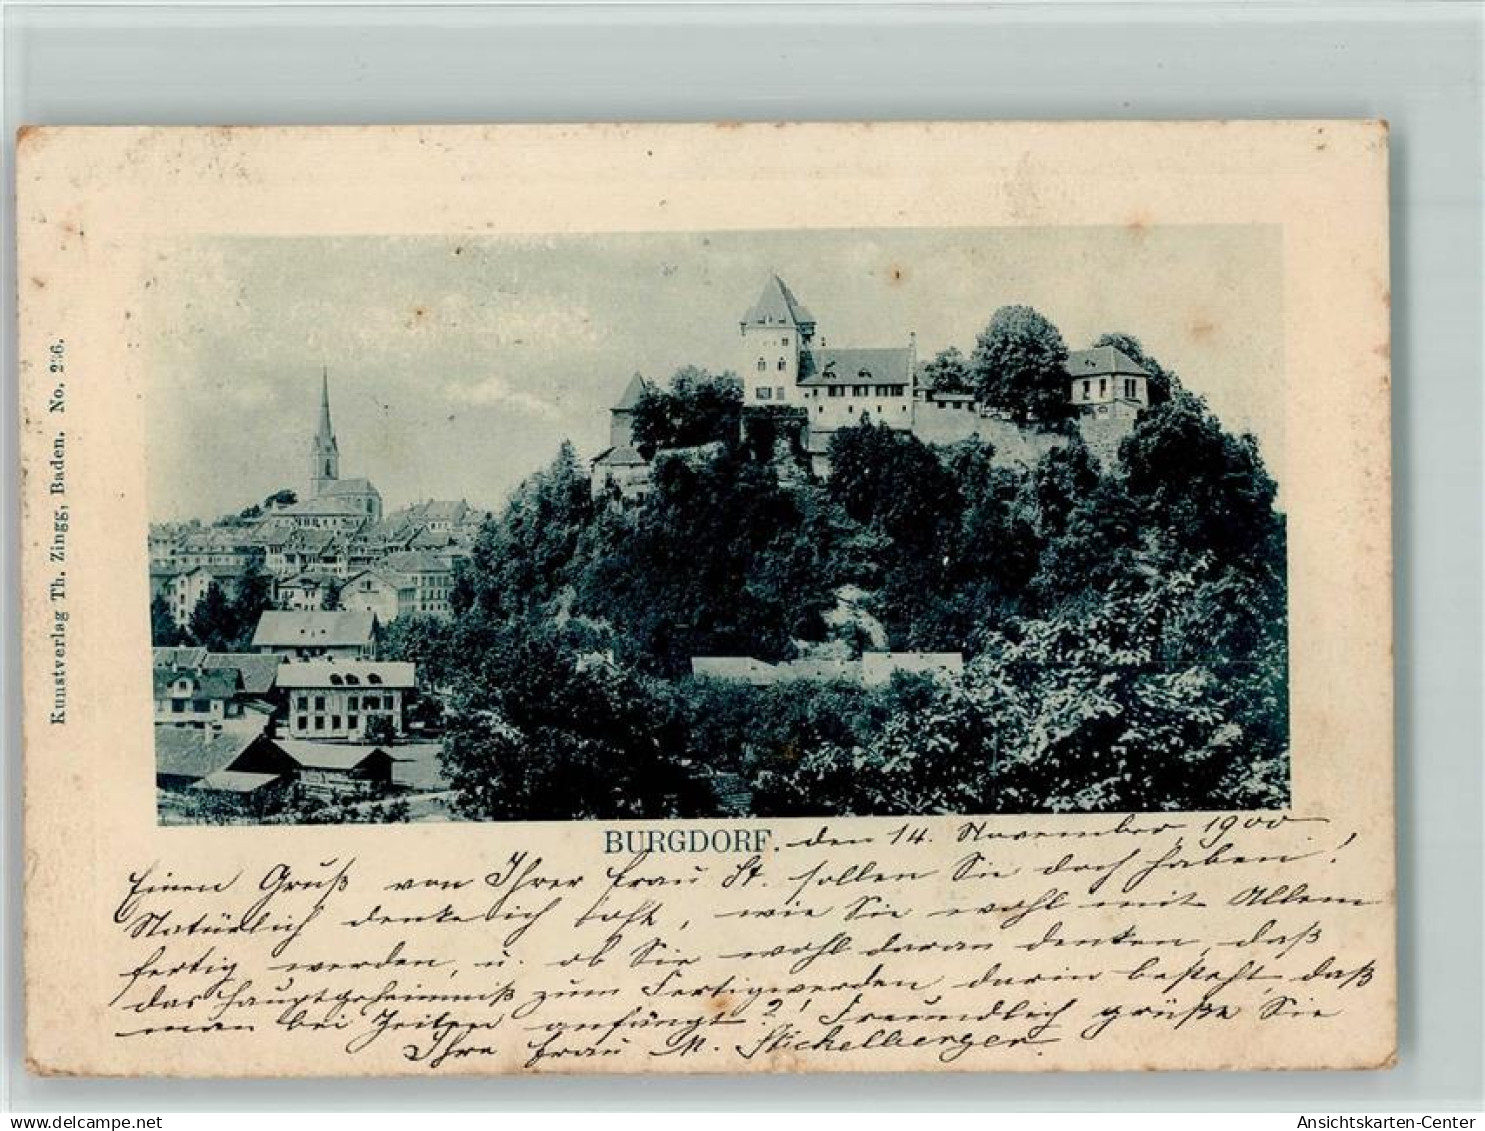 Kunstverlag Th. Zingg, Baden. No. 236.
BURGDORF. den 14. November 1900.
Einen Gruß von Ihrer Frau St. sollen Sie doch haben!
Natürlich denke ich oft, wie Sie wohl mit Allem
fertig werden, u. ob Sie wohl daran denken, daß
das Hauptgeheimniß zum Fertigwerden darin besteht, daß
man bei Zeiten anfängt?! Freundlich grüßt Sie
Ihre Frau M. Stickelberger.
delcampe.net
Ansichtskarten-Center